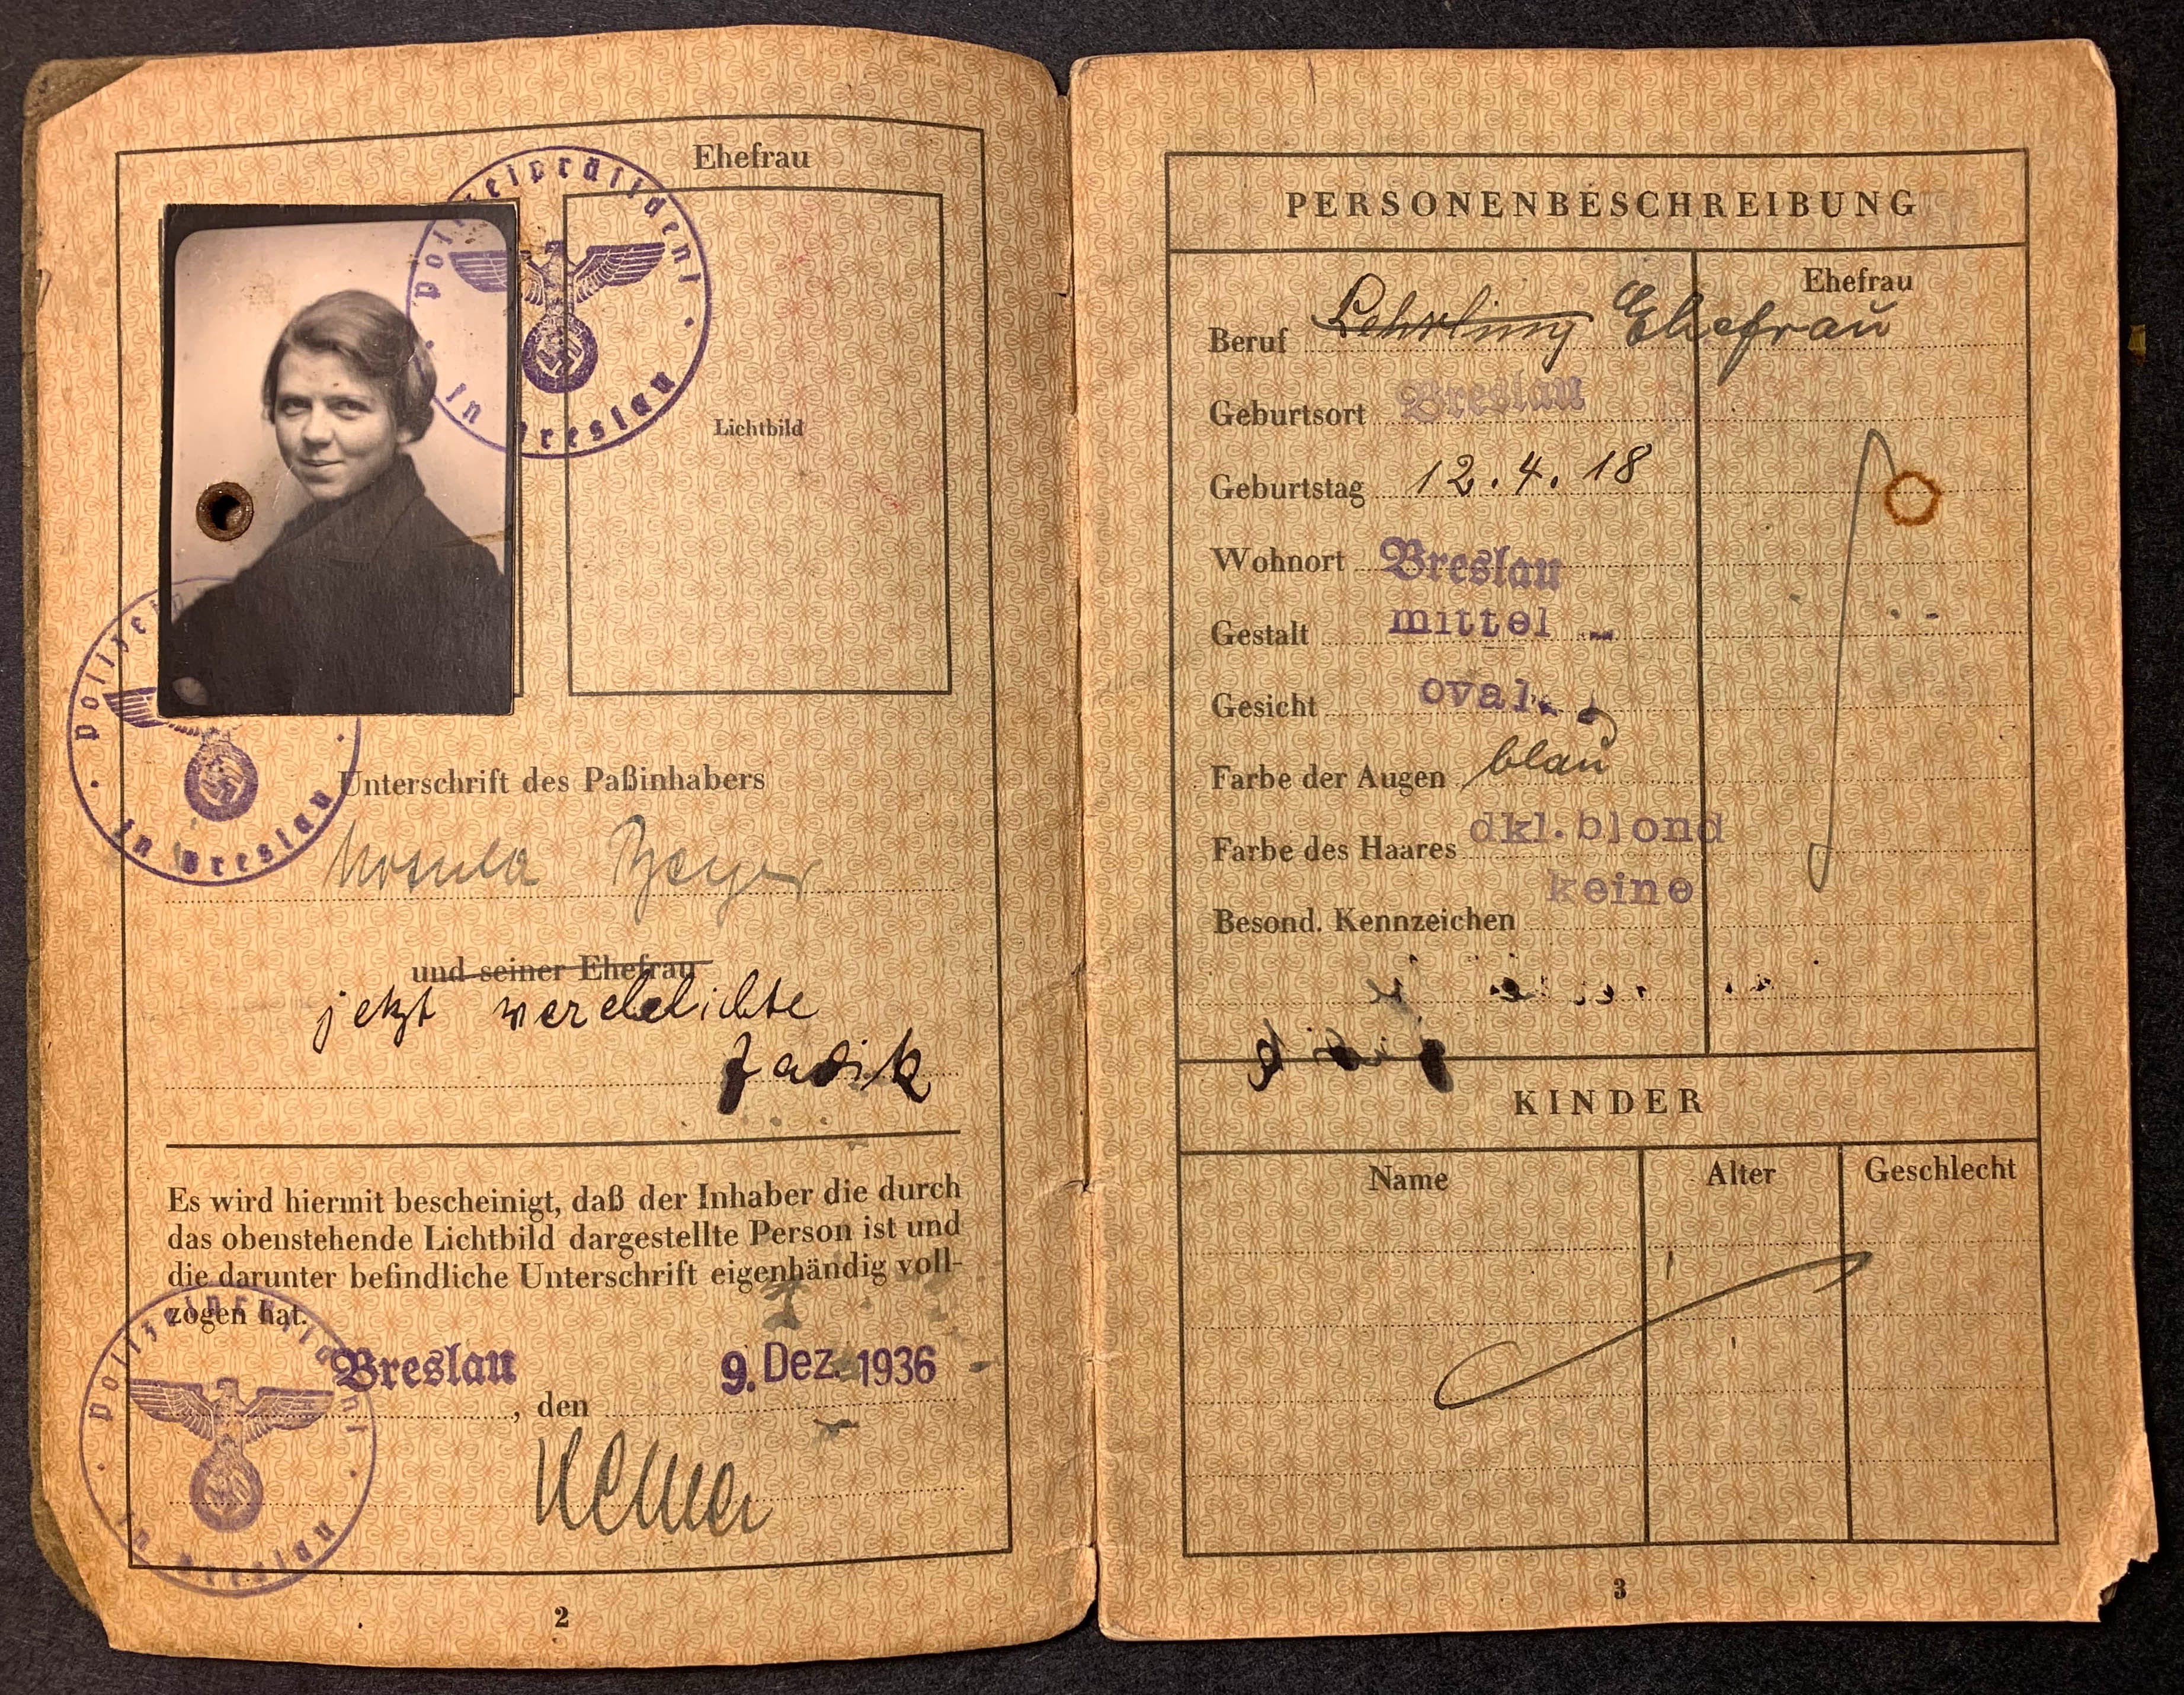 Ehefrau
Polizeipräsident
in Breslau
Lichtbild
Polizei
in Breslau
Unterschrift des Paßinhabers
Ursula Beyer
und seiner Ehefrau
jetzt verehelichte
Zadik
Es wird hiermit bescheinigt, daß der Inhaber die durch
das obenstehende Lichtbild dargestellte Person ist und
die darunter befindliche Unterschrift eigenhändig voll-
zogen hat.
Breslau, den 9. Dez. 1936
in Breslau
2
PERSONENBESCHREIBUNG
Ehefrau
Beruf Lehrling Ehefrau
Geburtsort Breslau
Geburtstag 12.4.18
Wohnort Breslau
Gestalt mittel
Gesicht oval
Farbe der Augen blau
Farbe des Haares dkl.blond
Besond. Kennzeichen keine
KINDER
Name Alter Geschlecht
3